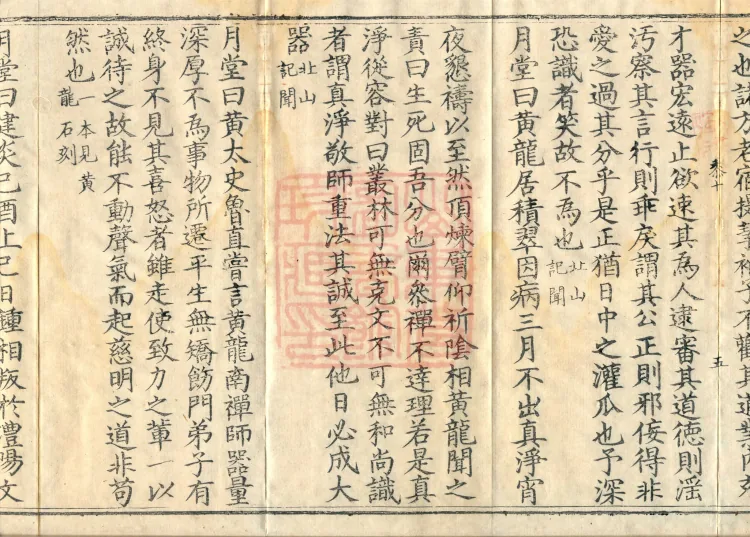 之也諸方老宿提挈衲子不觀其道業內充
五
才器宏遠止欲速其爲人逮審其道德則滛
汚察其言行則乖戾謂其公正則邪佞得非
愛之過其分乎是正猶日中之灌瓜也予深
恐識者笑故不爲也北山記聞
月堂曰黄龍居積翠因病三月不出真淨宵
夜懇禱以至然頂煉臂仰祈陰相黄龍聞之
責曰生死固吾分也爾叅禪不達理若是真
淨從容對曰叢林可無克文不可無和尚識
者謂真淨敬師重法其誠至此他日必成大
器北山記聞
月堂曰黄太史魯直嘗言黄龍南禪師器量
深厚不爲事物所遷平生無矯飾門弟子有
終身不見其喜怒者雖走使致力之輩一以
誠待之故能不動聲氣而起慈明之道非苟
然也一本見黄龍石刻
月堂曰建炎己酉上巳日鍾相叛於澧陽文